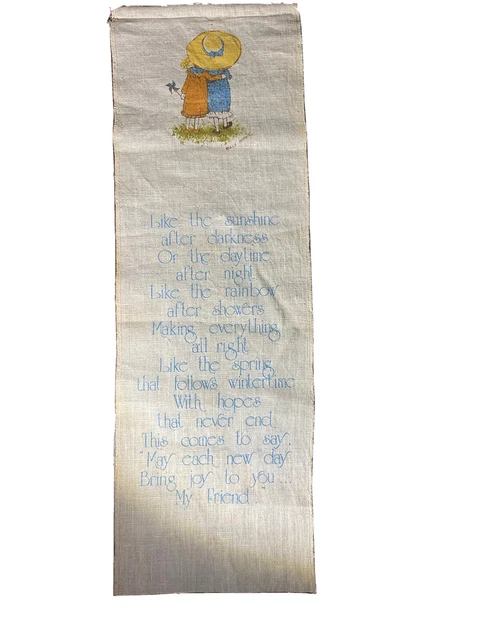 Like the sunshine
after darkness
Or the daytime
after night
Like the rainbow
after showers
Making everything
all right
Like the spring
that follows wintertime
With hopes
that never end
This comes to say:
"May each new day
Bring joy to you...
My Friend"